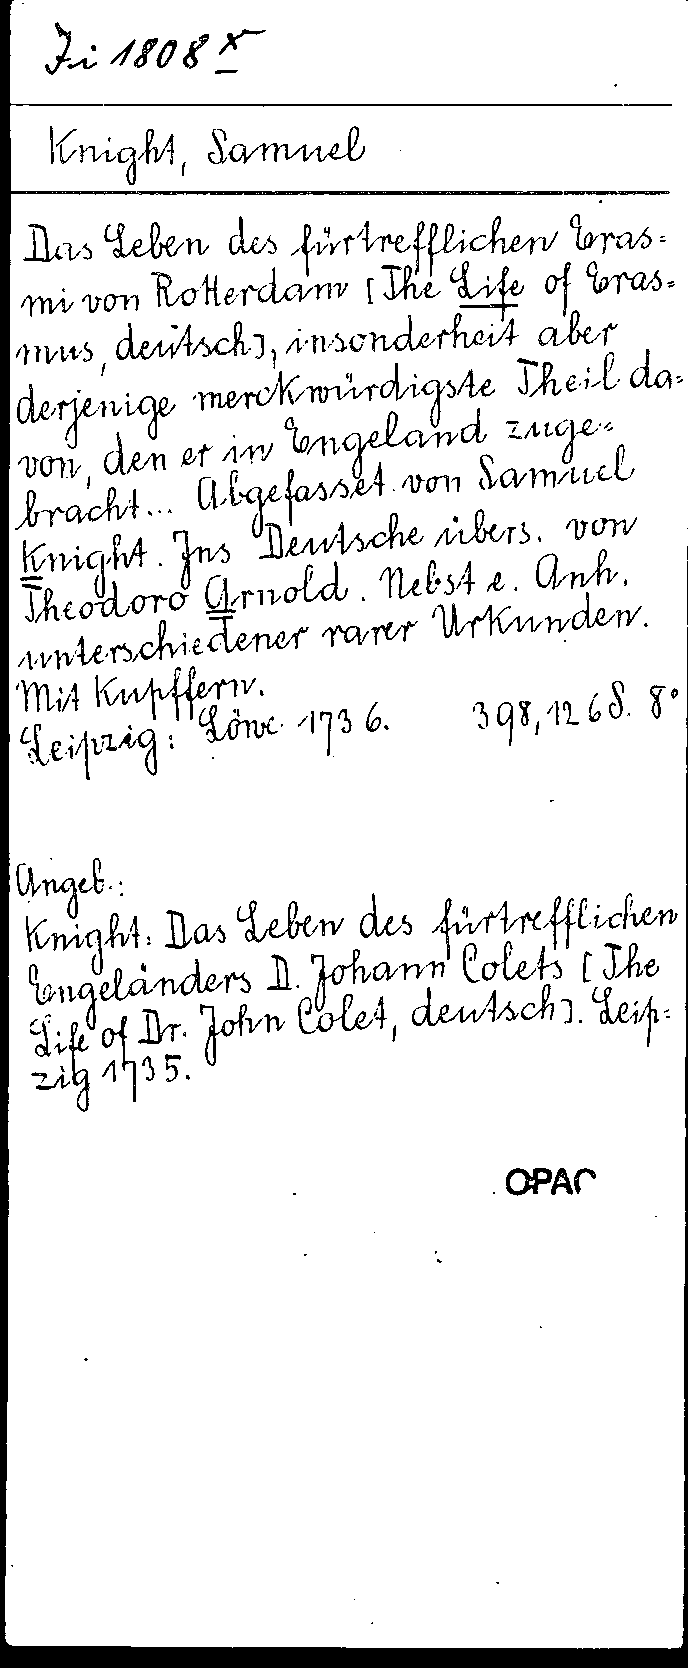 Ji 1808 x
Knight, Samuel
Das Leben des fürtrefflichen Eras=
mi von Rotterdam [The Life of Eras=
mus, deutsch], insonderheit aber
derjenige merckwürdigste Theil da=
von, den er in Engeland zuge=
bracht... Abgefasset von Samuel
Knight. Ins Deutsche übers. von
Theodoro Arnold. Nebst e. Anh.
unterschiedener rarer Urkunden.
Mit Kupffern.
Leipzig: Löwe 1736. 398,126 S. 8°
Angeb.:
Knight: Das Leben des fürtrefflichen
Engeländers D. Johann Colets [The
Life of Dr. John Colet, deutsch]. Leip=
zig 1735.
OPAC